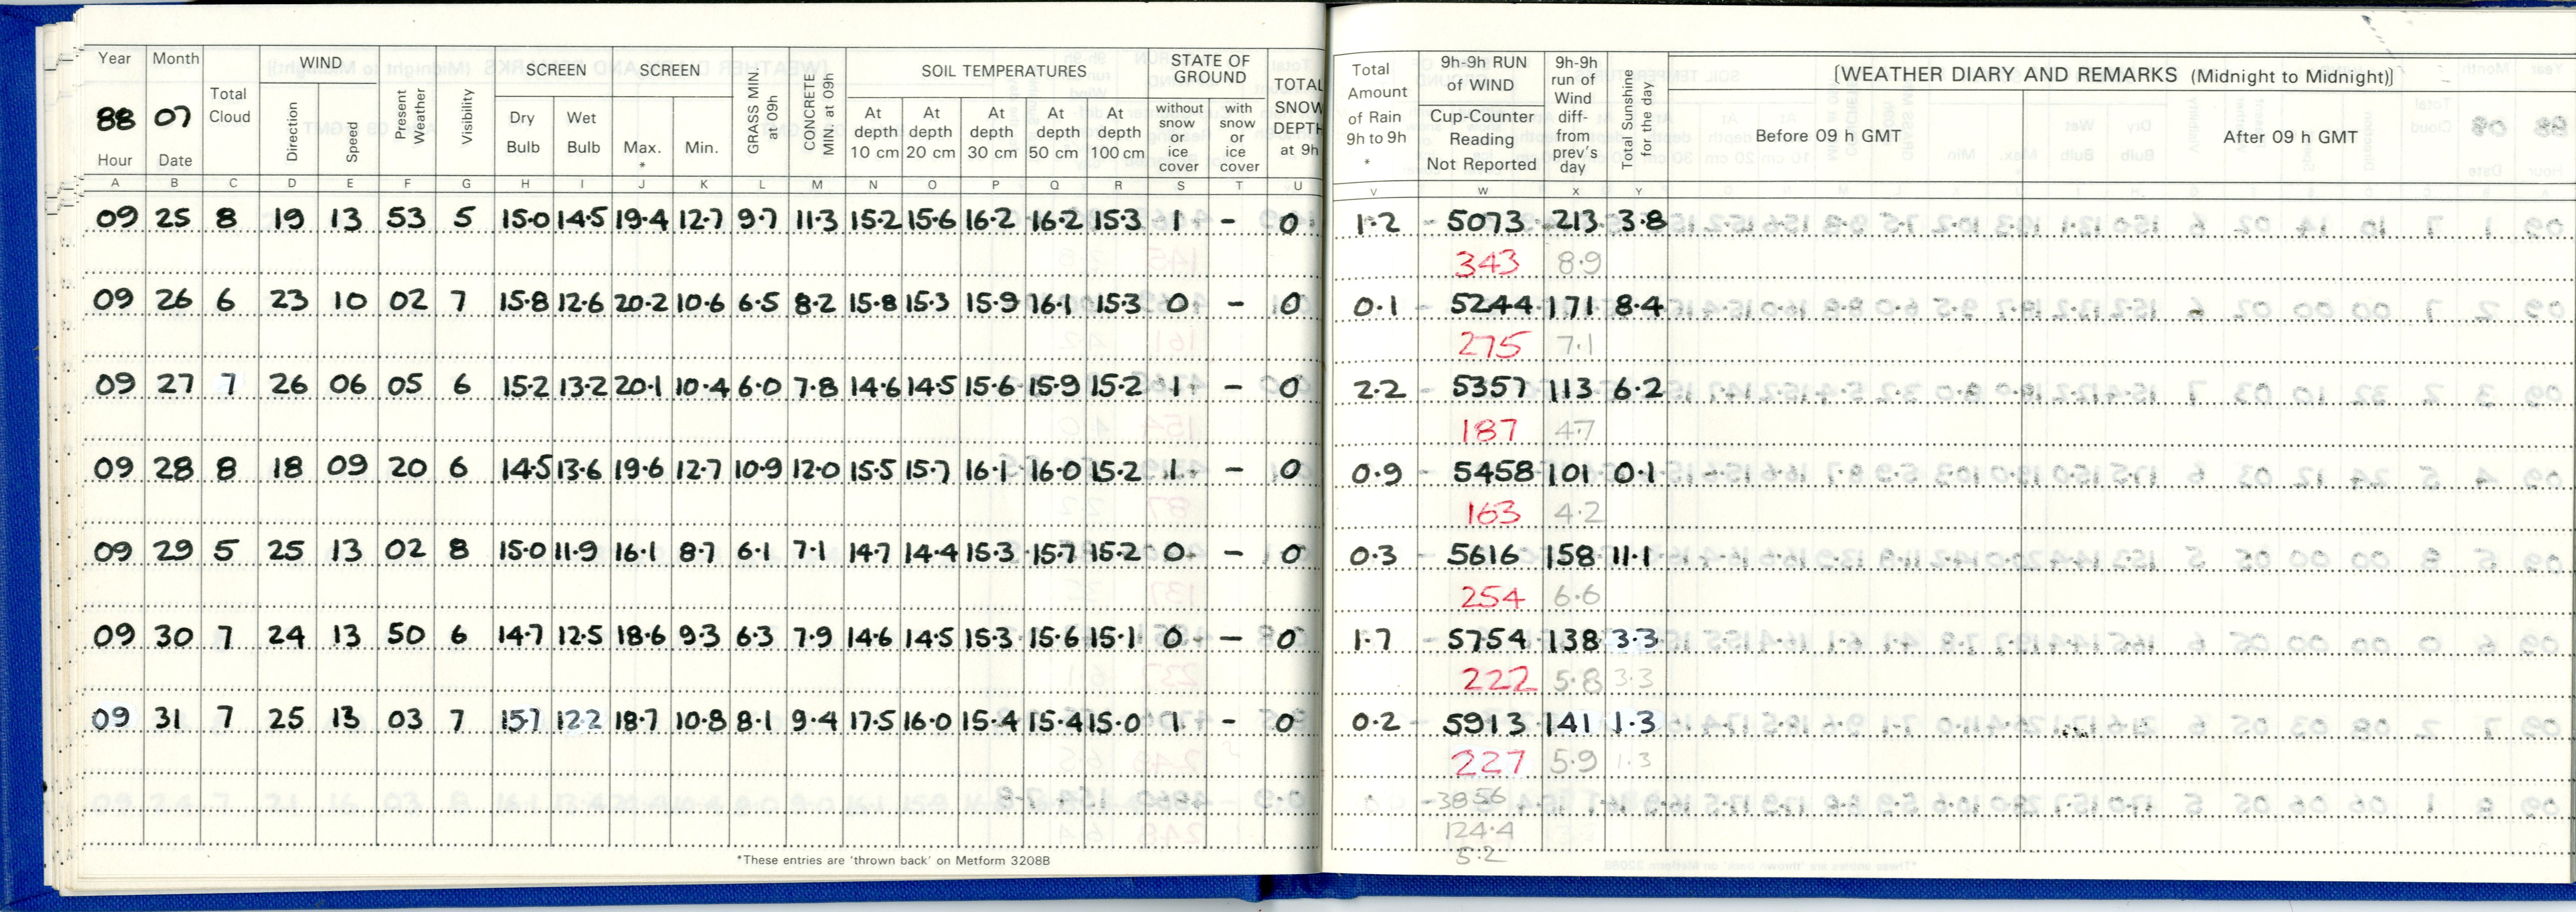 Year Month Total Cloud WIND Present Weather Visibility SCREEN SCREEN GRASS MIN. at 09h CONCRETE MIN. at 09h SOIL TEMPERATURES STATE OF GROUND TOTAL SNOW DEPTH at 9h Total Amount of Rain 9h to 9h * 9h-9h RUN of WIND 9h-9h run of Wind diff- from prev's day Total Sunshine for the day [WEATHER DIARY AND REMARKS (Midnight to Midnight)]
88 07 Direction Speed Dry Bulb Wet Bulb Max. * Min. At depth 10 cm At depth 20 cm At depth 30 cm At depth 50 cm At depth 100 cm without snow or ice cover with snow or ice cover Cup-Counter Reading Not Reported Before 09 h GMT After 09 h GMT
Hour Date
A B C D E F G H I J K L M N O P Q R S T U V W X Y
09 25 8 19 13 53 5 15.0 14.5 19.4 12.7 9.7 11.3 15.2 15.6 16.2 16.2 15.3 1 - 0 1.2 5073 213 3.8
343 8.9
09 26 6 23 10 02 7 15.8 12.6 20.2 10.6 6.5 8.2 15.8 15.3 15.9 16.1 15.3 0 - 0 0.1 5244 171 8.4
275 7.1
09 27 7 26 06 05 6 15.2 13.2 20.1 10.4 6.0 7.8 14.6 14.5 15.6 15.9 15.2 1 - 0 2.2 5357 113 6.2
187 4.7
09 28 8 18 09 20 6 14.5 13.6 19.6 12.7 10.9 12.0 15.5 15.7 16.1 16.0 15.2 1 - 0 0.9 5458 101 0.1
163 4.2
09 29 5 25 13 02 8 15.0 11.9 16.1 8.7 6.1 7.1 14.7 14.4 15.3 15.7 15.2 0 - 0 0.3 5616 158 11.1
254 6.6
09 30 7 24 13 50 6 14.7 12.5 18.6 9.3 6.3 7.9 14.6 14.5 15.3 15.6 15.1 0 - 0 1.7 5754 138 3.3
222 5.8 3.3
09 31 7 25 13 03 7 15.7 12.2 18.7 10.8 8.1 9.4 17.5 16.0 15.4 15.4 15.0 1 - 0 0.2 5913 141 1.3
227 5.9 1.3
-3856
124.4
5.2
*These entries are 'thrown back' on Metform 3208B